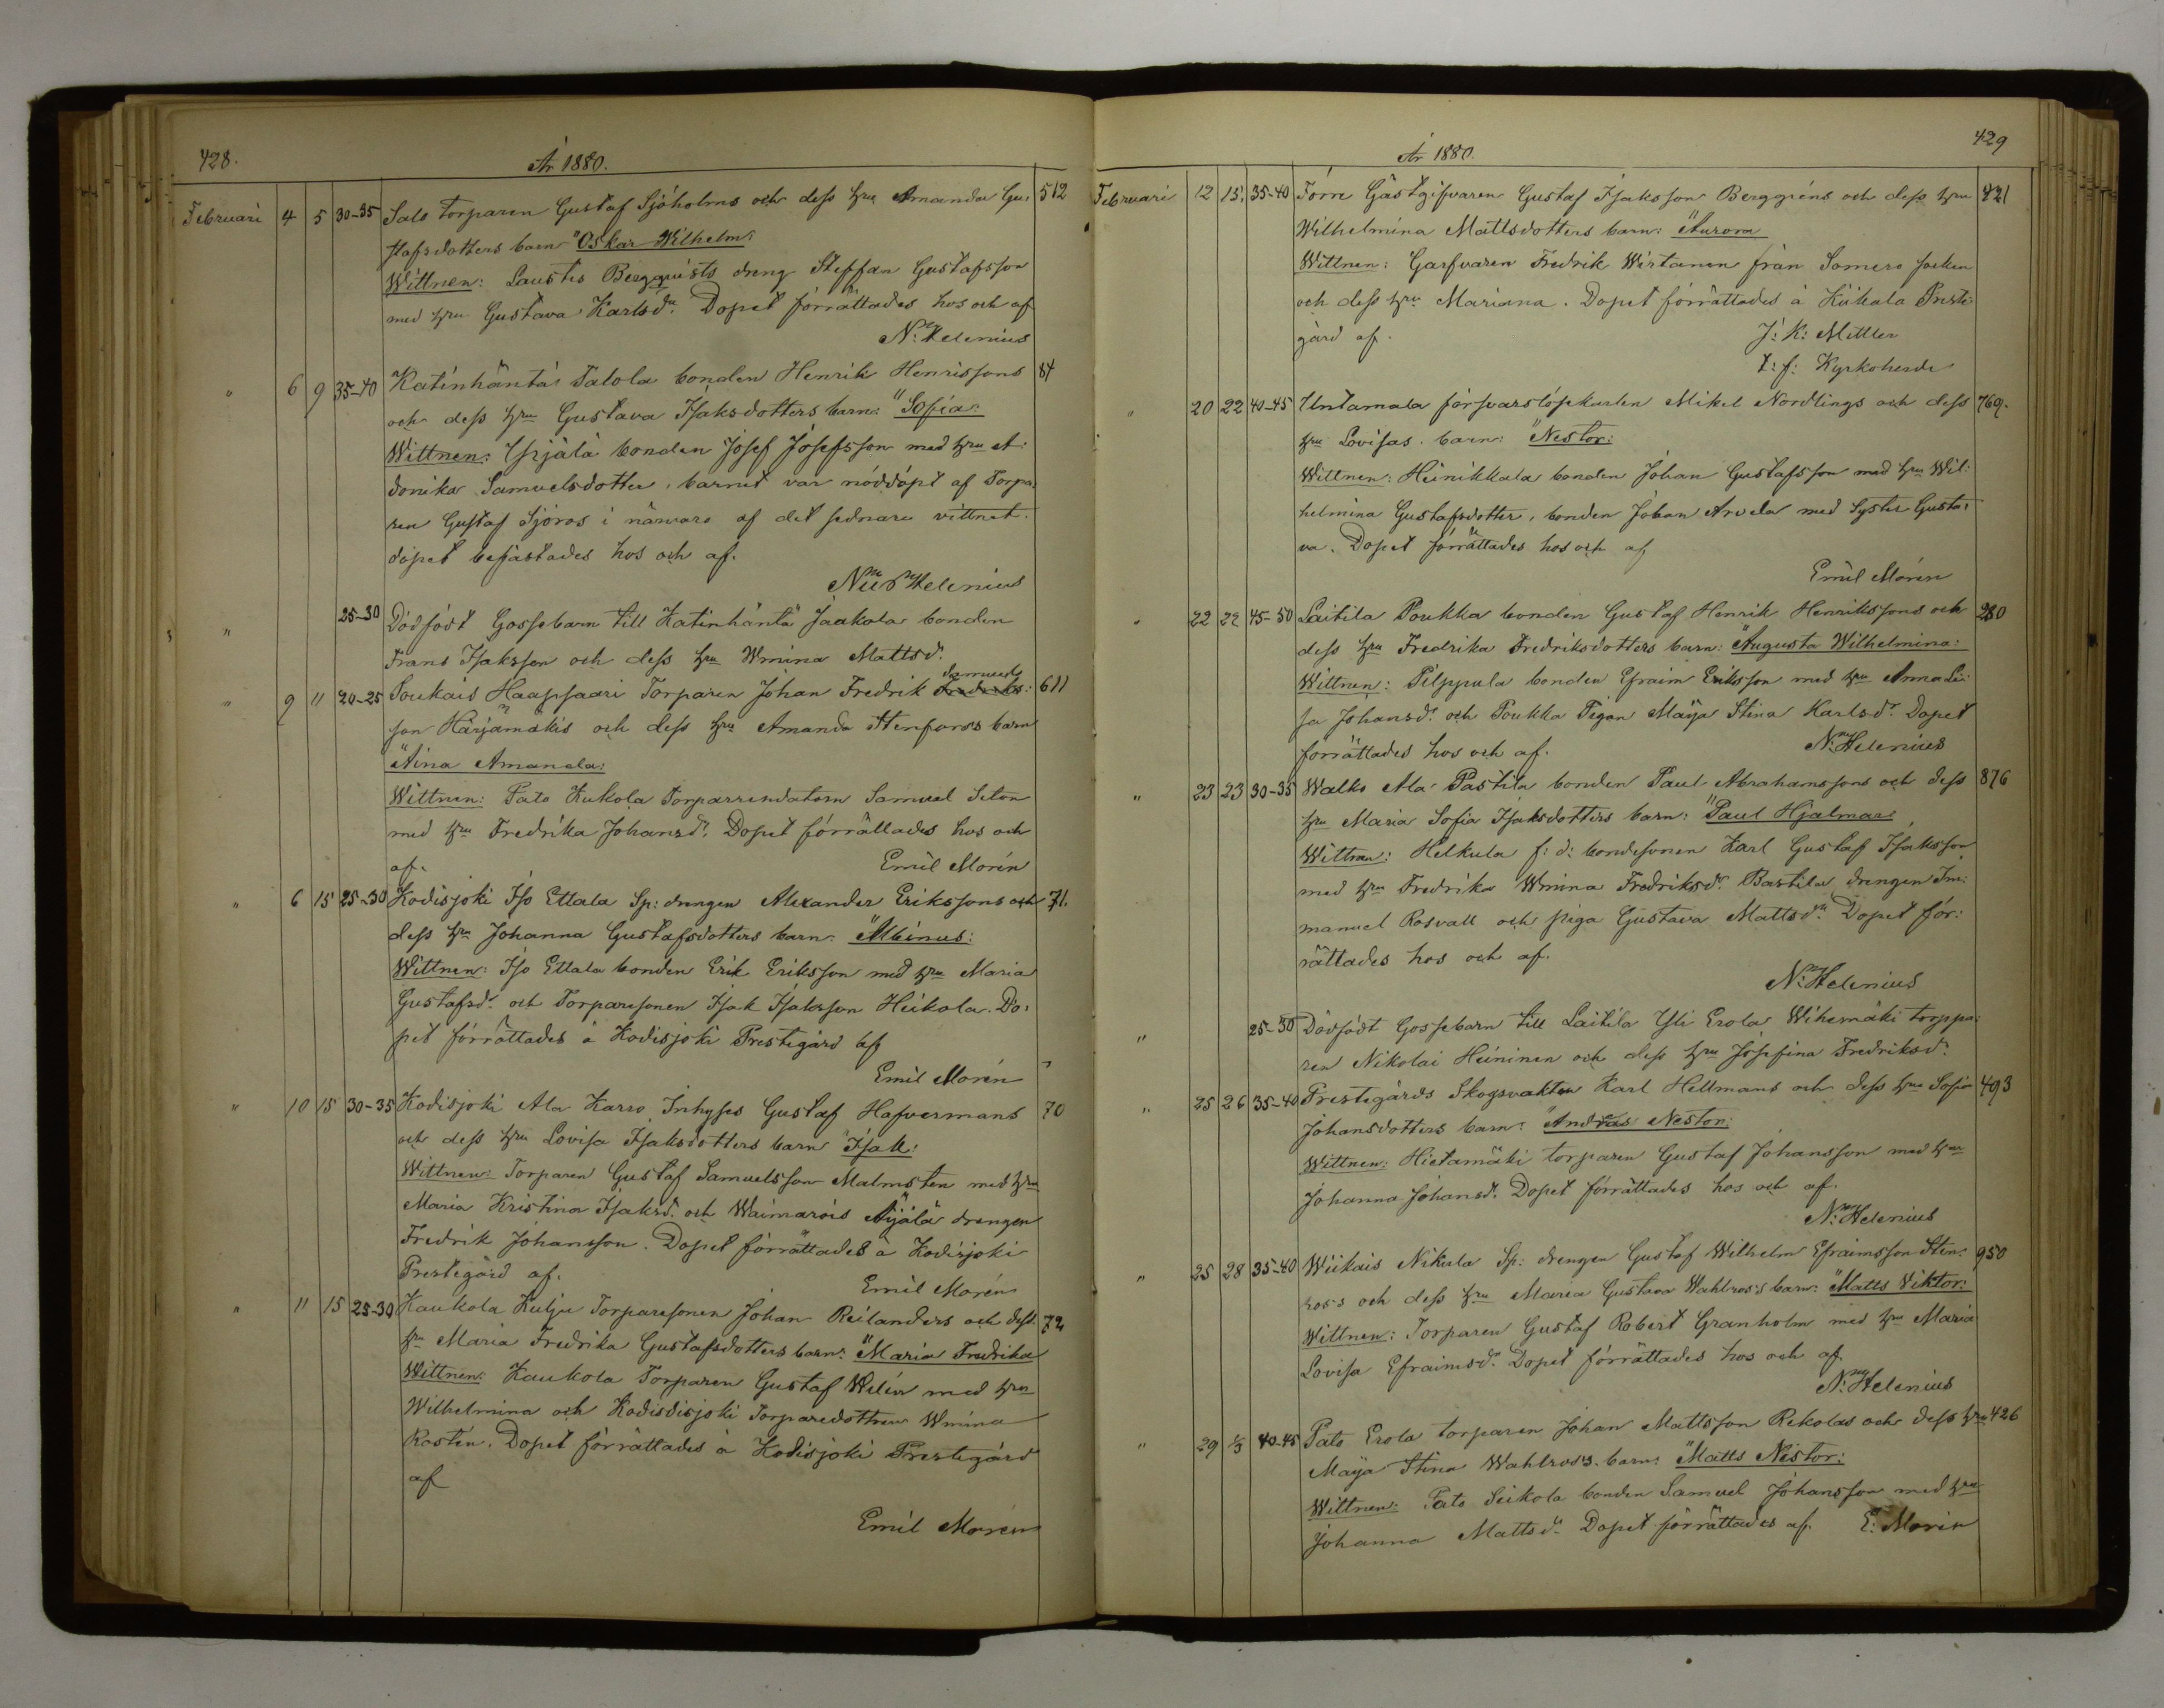 428.
År 1880.
Februari 4 5 30-35 Salo torparen Gustaf Sjöholms och dess hru Amanda Gu: 512
stafsdotters barn "Oskar Wilhelm:
Wittnen: Laustis Bergquists dreng Steffan Gustafsson
med hru Gustava Karlsdr. Dopet förrättades hos och af
N: Helenius
" 6 9 35-40 Katinhäntä Talola bonden Henrik Henrissons 84
och dess hru Gustava Isaksdotters barn: "Sofia:
Wittnen: Yrjälä bonden Josef Josefsson med hru A:
donika Samuelsdotter, barnet var nöddöpt af Torpa:
ren Gustaf Sjöros i närvaro af det sednare vittnet.
döpet befästades hos och af.
Nils Helenius
" 25-30 Dödfödt Gossebarn till Katinhäntä Jaakola bonden
Frans Isaksson och dess hru Wmina Mattsdr.
Samuels
" 9 11 20-25 Soukais Haapsaari Torparen Johan Fredrik Fredriks: 611
son Härjämäkis och dess hru Amanda Stenfors's barn
"Aina Amanda:
Wittnen: Pato Kukola Torparrendatorn Samuel Seton
med hru Fredrika Johansdr. Dopet förrättades hos och
af. Emil Morén
" 6 15 25-30 Kodisjoki Iso Ettala Sp: drengen Alexander Erikssons och 71.
dess hru Johanna Gustafsdotters barn: "Albinus:
Wittnen: Iso Ettala bonden Erik Eriksson med hru Maria
Gustafsdr. och Torparesonen Isak Isaksson Heikola. Do:
pet förrättades å Kodisjoki Prestegård af
Emil Morén
" 10 15 30-35 Kodisjoki Ala Karro Inhyses Gustaf Hafvermans 70
och dess hru Lovisa Isaksdotters barn "Isak:
Wittnen: Torparen Gustaf Samuelsson Malmsten med hru
Maria Kristina Isaksdr. och Waimarois Äijälä drengen
Fredrik Johansson. Dopet förrättades å Kodisjoki
Prestegård af. Emil Morén
" 11 15 25-30 Kaukola Kulju Torparesonen Johan Reilanders och dess 72
hru Maria Fredrika Gustafsdotters barn: "Maria Fredrika
Wittnen: Kaukola Torparen Gustaf Welin med hru
Wilhelmina och Kodisdisjoki Torparedottren Wmina
Rostén. Dopet förrättades å Kodisjoki Prestegård
af
Emil Morén
429
År 1880.
Februari 12 15 35-40 Förre Gästgifvaren Gustaf Isaksson Berggréns och dess hru 421
Wilhelmina Mattsdotters barn: "Aurora
Wittnen: Garfvaren Fredrik Wirtanen från Somero socken
och dess hru Mariana. Dopet förrättades å Kükala Preste:
gård af. J: K: Mittler
t: f: Kyrkoherde
" 20 22 40-45 Untamala försvarslösekarlen Mikel Nordlings och dess 769.
hru Lovisas barn: "Nestor:
Wittnen: Heinikkala bonden Johan Gustafsson med hru Wil:
helmina Gustafsdotter, bonden Johan Arvela med Syster Gusta:
va. Dopet förrättades hos och af
Emil Morén
" 22 22 45-50 Laitila Poukka bonden Gustaf Henrik Henrikssons och 280
dess hru Fredrika Fredriksdotters barn: "Augusta Wilhelmina:
Wittnen: Pilppula bonden Efraim Eriksson med hru Anna Li:
sa Johansdr. och Poukka Pigan Maija Stina Karlsdr. Dopet
förrättades hos och af. N: Helenius
" 23 23 30-35 Walko Ala Pastila bonden Paul Abrahamssons och dess 876
hru Maria Sofia Isaksdotters barn: "Paul Hjalmar
Wittnen: Helkula f: d: bondesonen Karl Gustaf Isaksson
med hru Fredrika Wmina Fredriksdr. Bastila drengen Im:
manuel Rosvall och piga Gustava Mattsdr. Dopet för:
rättades hos och af.
N: Helenius
" 25-30 Dödfödt Gossebarn till Laitila Yli Erola Wihemäki torppa:
ren Nikolai Heininen och dess hru Josefina Fredriksdr.
" 25 26 35-40 Prestegårds Skogsvakten Karl Hellmans och dess hru Sofia 493
Johansdotters barn: "Andras Nestor:
Wittnen: Hietamäki torparen Gustaf Johansson med hru
Johanna Johansdr. Dopet förrättades hos och af.
N: Helenius
" 25 28 35-40 Wiikais Nikula Sp: drengen Gustaf Wilhelm Efraimsson Sten: 950
ros's och dess hru Maria Gustava Wahlros's barn: "Matts Viktor:
Wittnen: Torparen Gustaf Robert Granholm med hru Maria
Lovisa Efraimsdr. Dopet förrättades hos och af.
N: Helenius
" 29 1/3 40-45 Pato Erola torparen Johan Mattsson Rekolas och dess hru 426
Maija Stina Wahlros's barn: "Matts Nestor:
Wittnen: Pato Seikola bonden Samuel Johansson med hru
Johanna Mattsdr. Dopet förrättades af. E: Morén